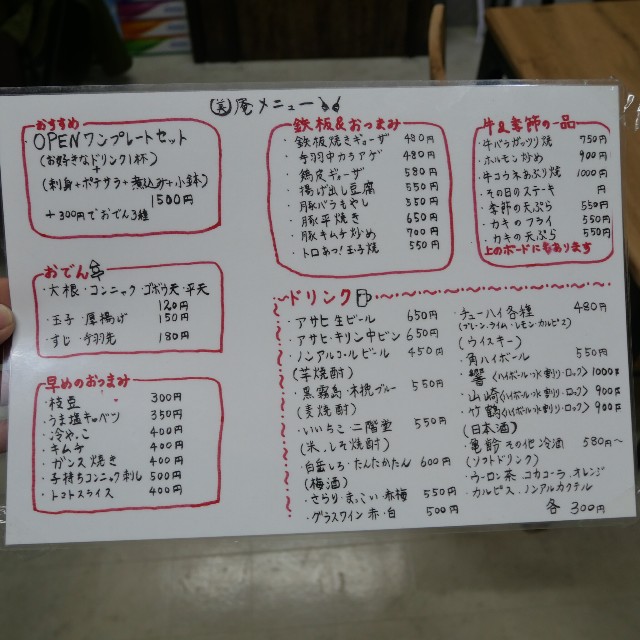 庵メニュー
おすすめ
OPENワンプレートセット
(お好きなドリンク1杯)
+
(刺身+ポテサラ+煮込み+小鉢)
1500円
+300円でおでん3種
おでん
・大根・コンニャク・ゴボウ天・平天
120円
・玉子・厚揚げ 150円
・すじ・手羽先 180円
早めのおつまみ
・枝豆 300円
・うま塩キャベツ 350円
・冷やっこ 400円
・キムチ 400円
・ガンス焼き 400円
・子持ちコンニャク刺し 500円
・トマトスライス 400円
鉄板&おつまみ
・鉄板焼きギョーザ 480円
・手羽中カラアゲ 480円
・鶏皮ギョーザ 580円
・揚げ出し豆腐 550円
・豚バラもやし 350円
・豚平焼き 650円
・豚キムチ炒め 700円
・トロあつ!玉子焼 550円
牛&季節の一品
・牛バラガッツリ焼 750円
・ホルモン炒め 900円
・牛コウネあぶり焼 1000円
・その日のステーキ 円
・季節の天ぷら 550円
・カキのフライ 550円
・カキの天ぷら 550円
上のボードにもあります
ドリンク
・アサヒ生ビール 650円
・アサヒ・キリン中ビン 650円
・ノンアルコールビール 450円
(芋焼酎)
・黒霧島・木挽ブルー 550円
(麦焼酎)
・いいちこ・二階堂 550円
(米・しそ焼酎)
・白岳しろ・たんたかたん 600円
(梅酒)
・さらり・まっこい・赤梅 550円
・グラスワイン 赤・白 500円
・チューハイ各種 480円
(プレーン・ライム・レモン・カルピス)
(ウイスキー)
・角ハイボール 550円
・響(ハイボール・水割り・ロック) 1000円
・山崎(ハイボール・水割り・ロック) 900円
・竹鶴(ハイボール・水割り・ロック) 900円
(日本酒)
・亀齢 その他冷酒 580円~
(ソフトドリンク)
・ウーロン茶 コカコーラ、オレンジ
・カルピス、ノンアルカクテル
各 300円